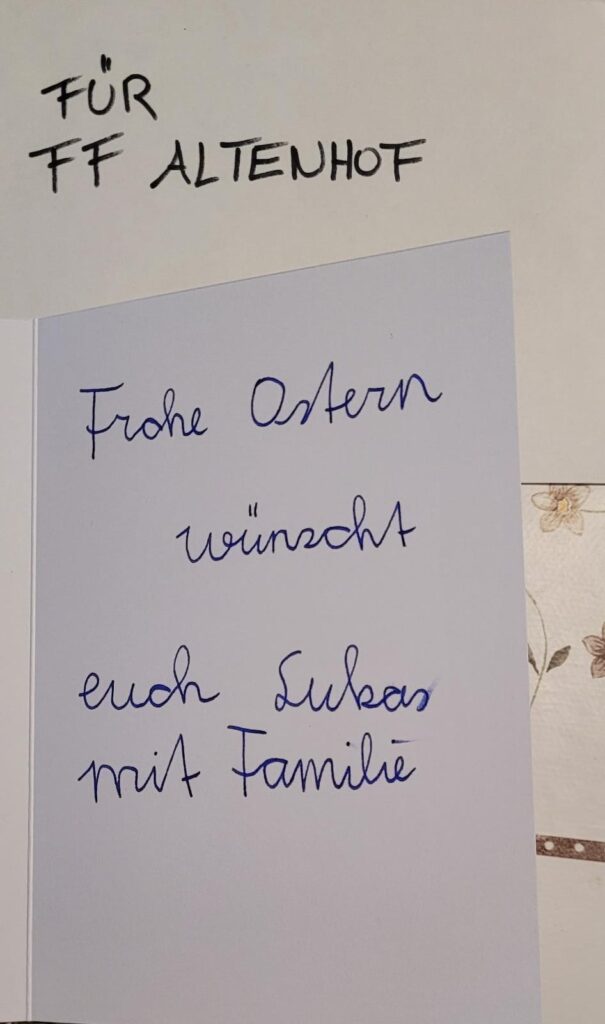 FÜR
FF ALTENHOF
Frohe Ostern
wünscht
euch Lukas
mit Familie